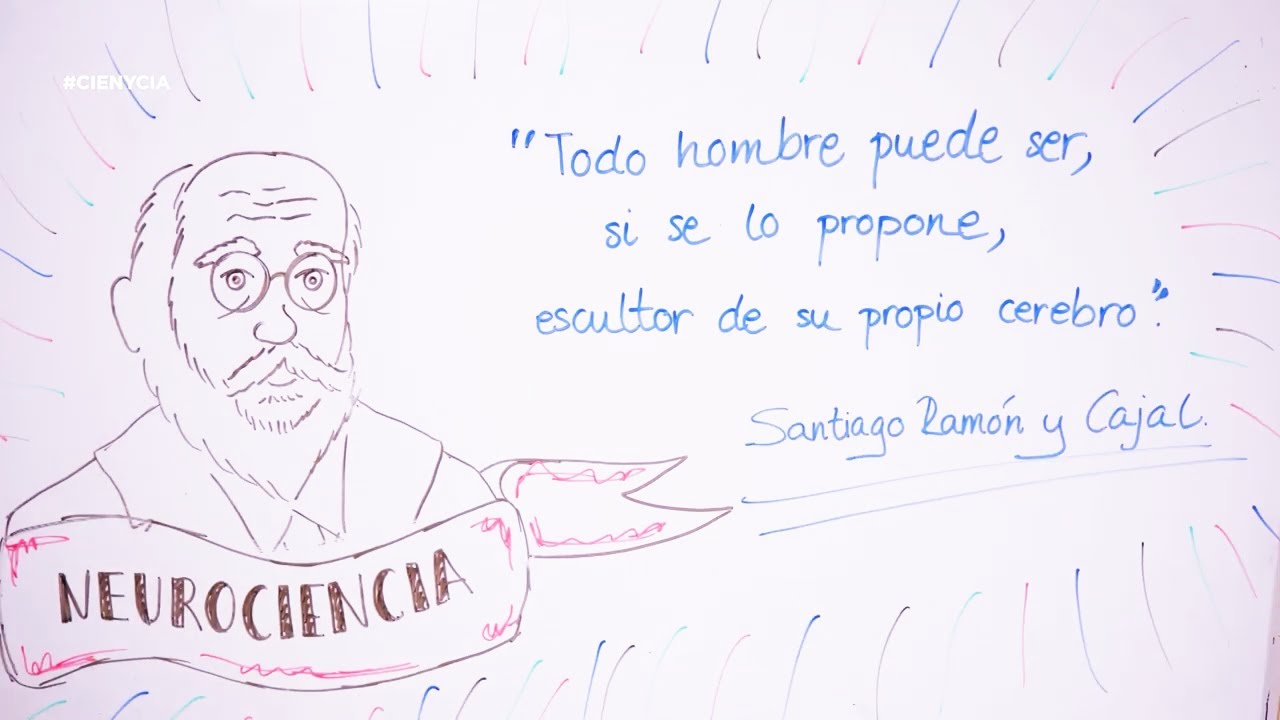 #CIENYCIA
"Todo hombre puede ser,
si se lo propone,
escultor de su propio cerebro".
Santiago Ramón y Cajal.
NEUROCIENCIA